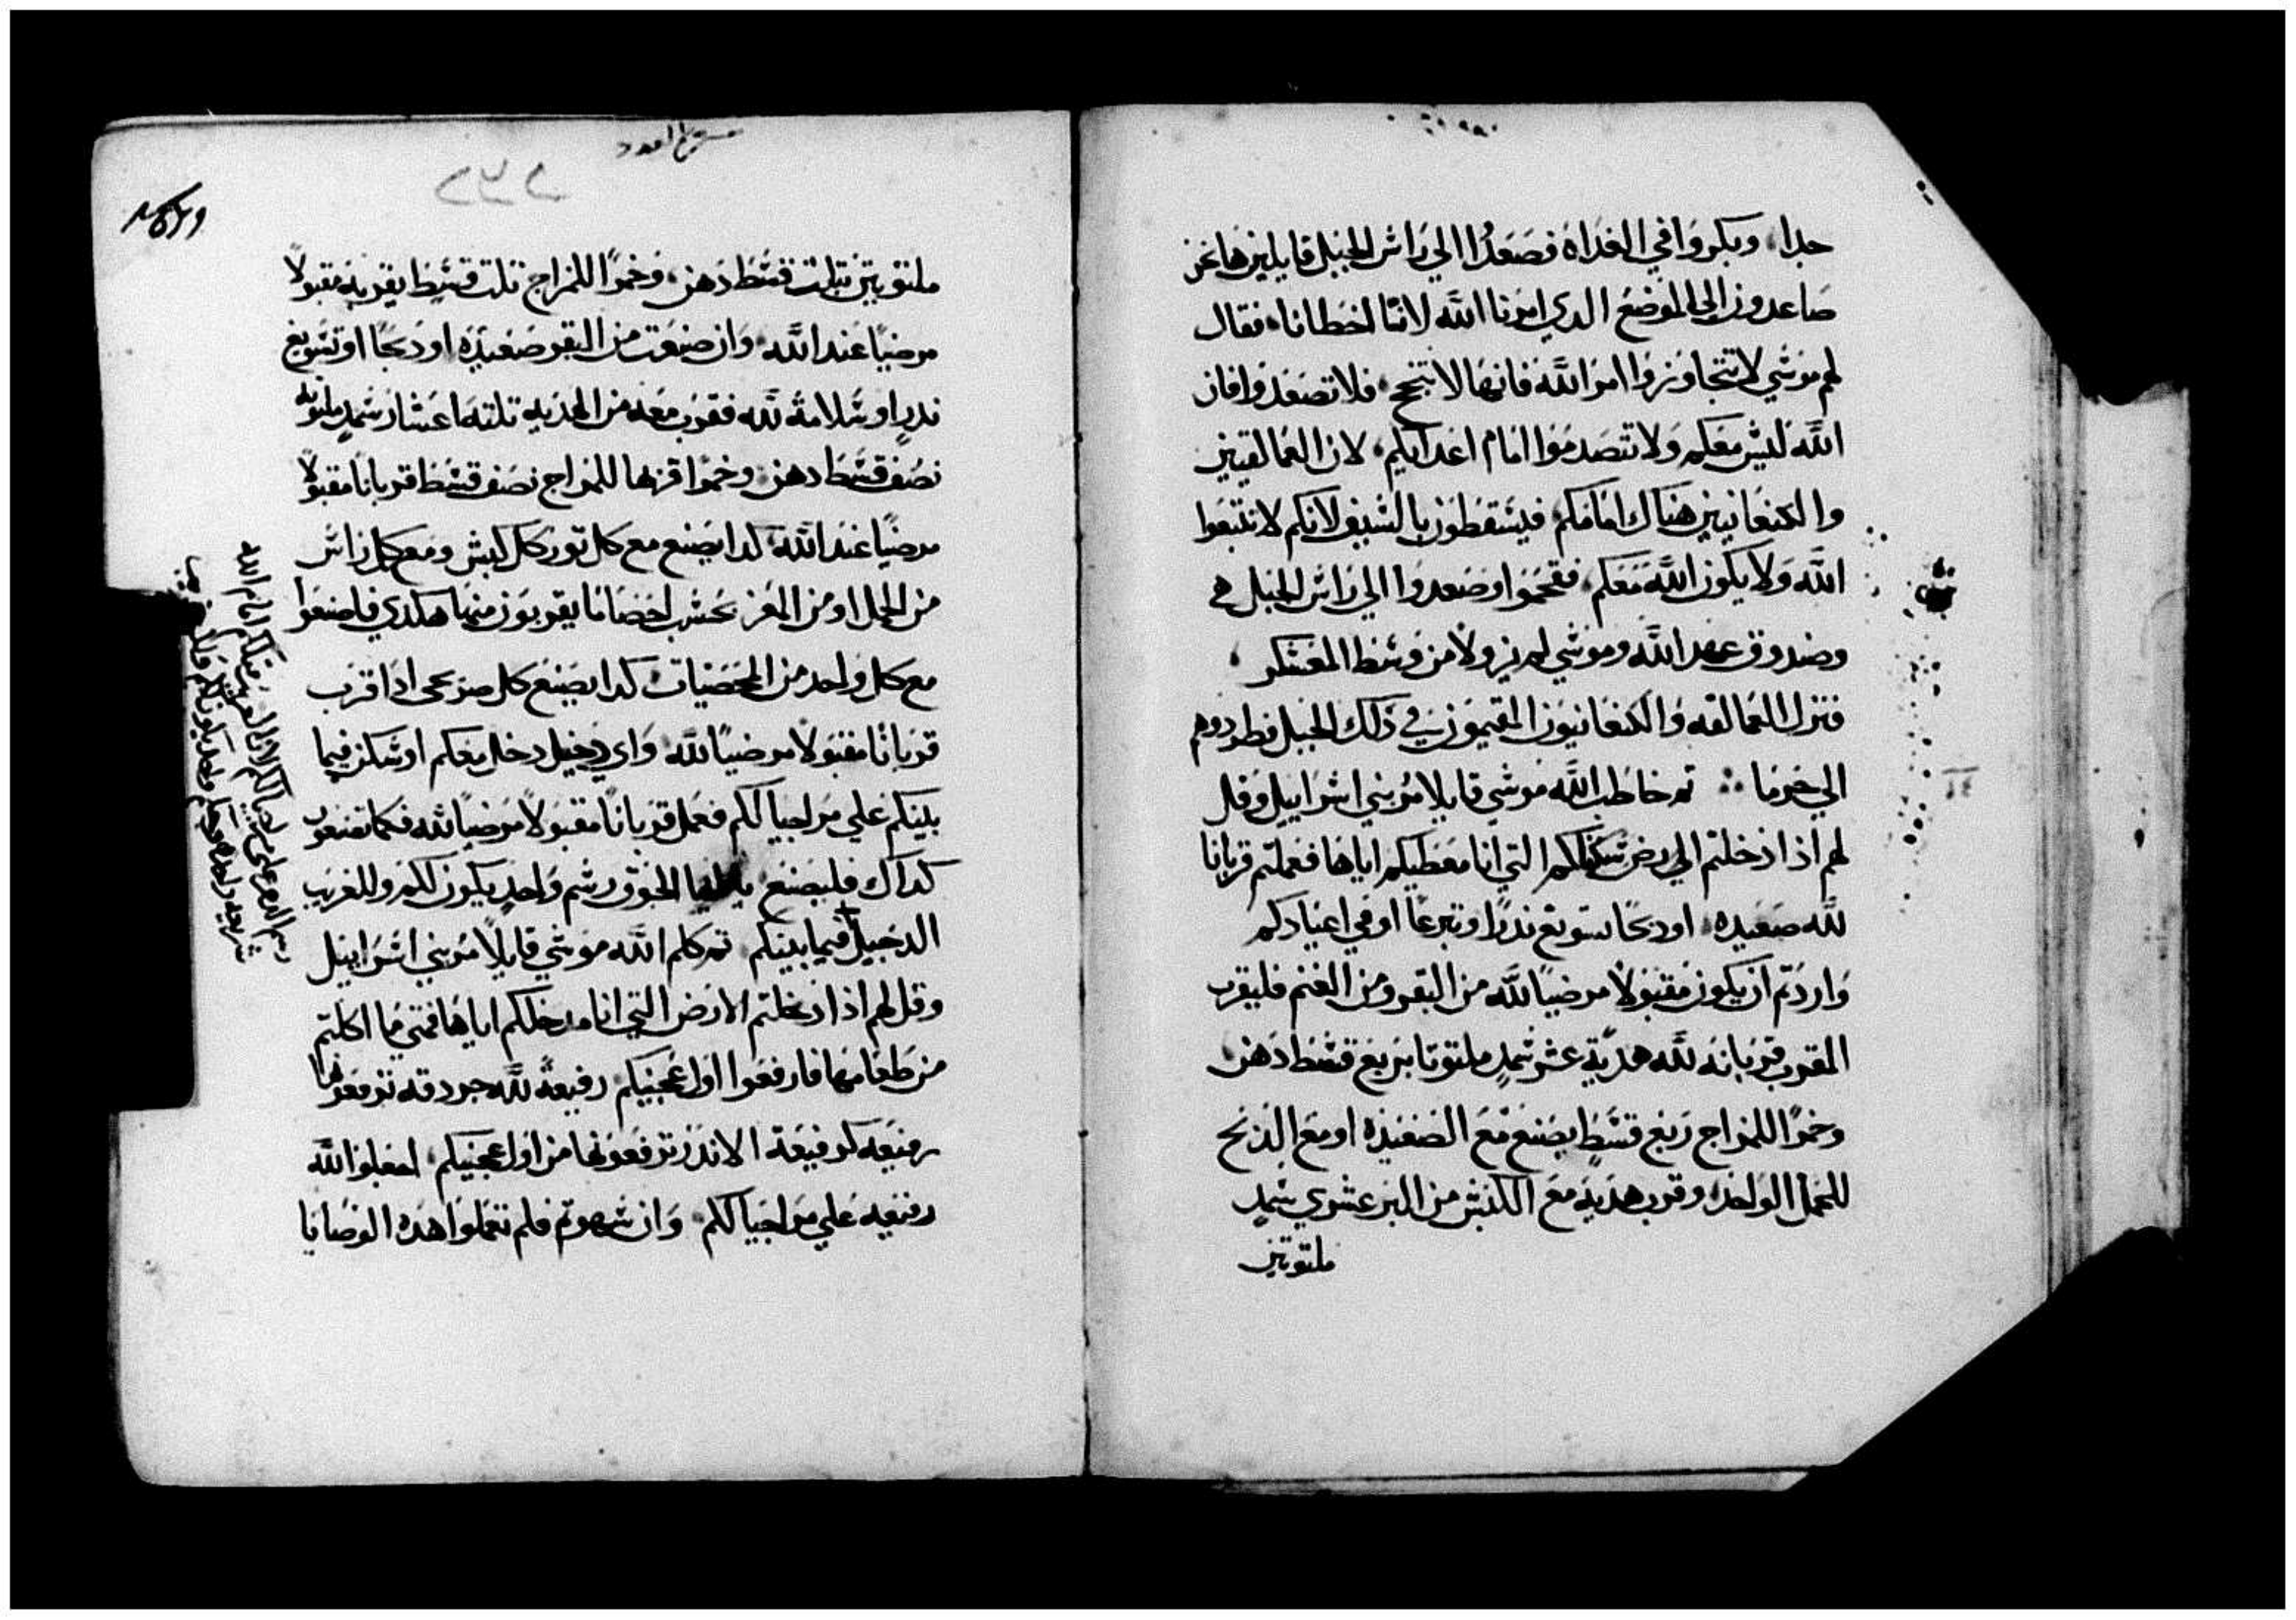 جدا، وبكروا في الغداه فصعدوا الي راس الجبل قايلين هانحن
صاعدون الي الموضع الدي امرنا الله لاننا اخطانا، فقال
لهم موسي لا تتجاوزوا امر الله فانها لا تنجح، فلا تصعدوا فان
الله ليس معكم ولا تتصدموا امام اعدايكم، لان العمالقيين
والكنعانيين هناك امامكم فيسقطون بالسيف لانكم لا تتبعوا
الله ولا يكون الله معكم، فتقحموا وصعدوا الي راس الجبل
وصندوق عهد الله وموسي لم يزولا من وسط المعسكر،
فنزل العمالقه والكنعانيون المقيمون في ذلك الجبل فطردوهم
الي حرما ∴ تم خاطب الله موسي قايلا مر بني اسراييل وقل
لهم اذا دخلتم الي رض سكناكم التي انا معطيكم اياها فعملتم قربانا
لله صعيده، او دبحا تسويغ ندرا وتبرعا او في اعيادكم
واردتم ان يكون مقبولا مرضيا لله من البقر ومن الغنم فليقرب
المقرب قربانه لله هدية عشر سميد ملتوتا بربع قسط دهن
وخمرا للمزاج ربع قسط يصنع مع الصعيده او مع الدبح
للحمل الواحد، وقرب هديه مع الكبش من البر عشري سميد
ملتوتين
مشروع العدد
٢٣٢
ملتوتين بتلت قسط دهن، وخمرا للمزاج تلت قسط يقربه مقبولا
مرضيا عند الله، وان صنعت من البقر صعيده او دبحا او تسويغ
ندر او سلامة لله فقرب معه من الهديه تلته اعشار سميد ملتوته
نصف قسط دهن، وخمرا قربها للمزاج نصف قسط قربانا مقبولا
مرضيا عند الله، كدا يصنع مع كل تور وكل كبش ومع كل راس
من الحمل او من المعز بحسب احصا ما يقربون منها هكدي فاصنعوا
مع كل واحد من المحصيات، كدا يصنع كل صريحي ادا قرب
قربانا مقبولا مرضيا لله، واي دخيل دخل معكم او سكن فيما
بينكم علي مر احيالكم فعمل قربانا مقبولا مرضيا لله فكما تصنعون
كداك فليصنع الجوق رسم واحد يكون لكم وللغريب
الدخيل فيما بينكم، تم كلم الله موسي قايلا مر بني اسراييل
وقل لهم اذا دخلتم الارض التي انا مدخلكم اياها فمتي ما اكلتم
من طعامها فارفعوا اول عجينكم، رفيعة لله جردقه ترفعونها
رفيعه كرفيعة الاندر ترفعونها من اول عجينكم، اجعلوا لله
رفيعه علي مر احيالكم، وان سهوتم فلم تعملوا هده الوصايا
رسم الدهر علي احيالكم لان الغريب متلكم امام الله
شريعه واحده وحكم واحد يكون لكم وللغريب